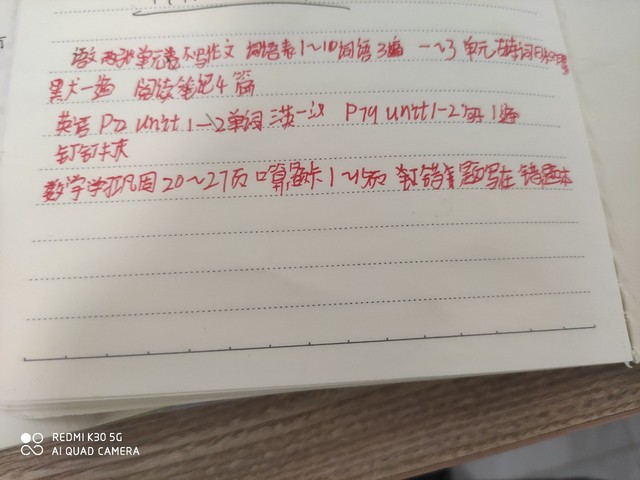 语文 两张单元卷不写作文 词语表1～10词语3遍 一～3 单元
默犬一遍 阅读笔记4篇
英语 P72 Unit 1—2单词 三英一汉 P79 Unit 1-2 1遍
钉钉卡
数学 学亚凡周20～27页 口算卡1～15页 错题写在 错题本
REDMI K30 5G
AI QUAD CAMERA